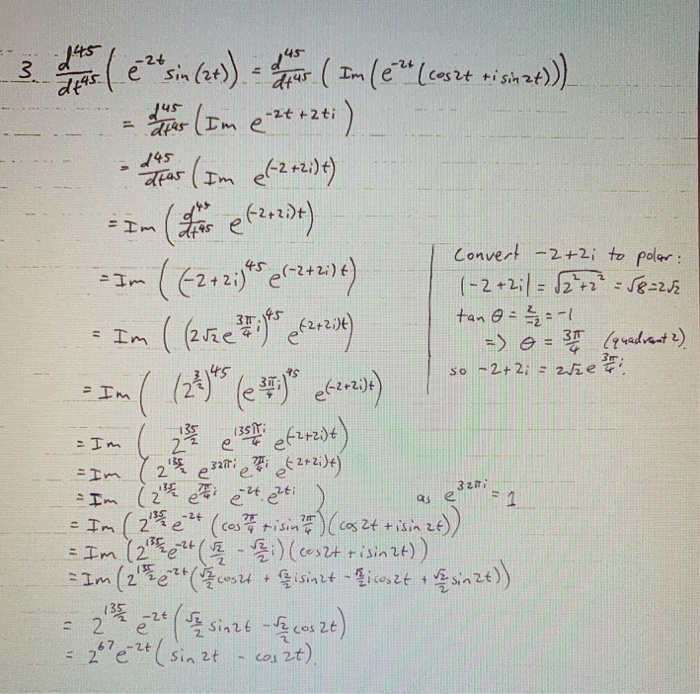 3. d⁴⁵/dt⁴⁵ ( e^(-2t) sin(2t) ) = d⁴⁵/dt⁴⁵ ( Im ( e^(-2t) (cos2t + i sin2t) ) )
= d⁴⁵/dt⁴⁵ ( Im e^(-2t+2ti) )
= d⁴⁵/dt⁴⁵ ( Im e^((-2+2i)t) )
= Im ( d⁴⁵/dt⁴⁵ e^((-2+2i)t) )
= Im ( (-2+2i)^45 e^((-2+2i)t) )
= Im ( (2√2 e^(3π/4 i))^45 e^((-2+2i)t) )
= Im ( (2^(3/2))^45 (e^(3π/4 i))^45 e^((-2+2i)t) )
= Im ( 2^(135/2) e^(135π/4 i) e^((-2+2i)t) )
= Im ( 2^(135/2) e^(32πi) e^(7π/4 i) e^((-2+2i)t) )
= Im ( 2^(135/2) e^(7π/4 i) e^(-2t) e^(2ti) ) as e^(32πi) = 1
= Im ( 2^(135/2) e^(-2t) (cos 7π/4 + i sin 7π/4) (cos 2t + i sin 2t) )
= Im ( 2^(135/2) e^(-2t) (√2/2 - √2/2 i) (cos2t + i sin2t) )
= Im ( 2^(135/2) e^(-2t) (√2/2 cos2t + √2/2 i sin2t - √2/2 i cos2t + √2/2 sin2t) )
= 2^(135/2) e^(-2t) ( √2/2 sin2t - √2/2 cos2t )
= 2^67 e^(-2t) ( sin 2t - cos 2t ).
Convert -2+2i to polar:
|-2+2i| = √(2²+2²) = √8 = 2√2
tan θ = 2/-2 = -1
=> θ = 3π/4 (quadrant 2).
so -2+2i = 2√2 e^(3π/4 i).